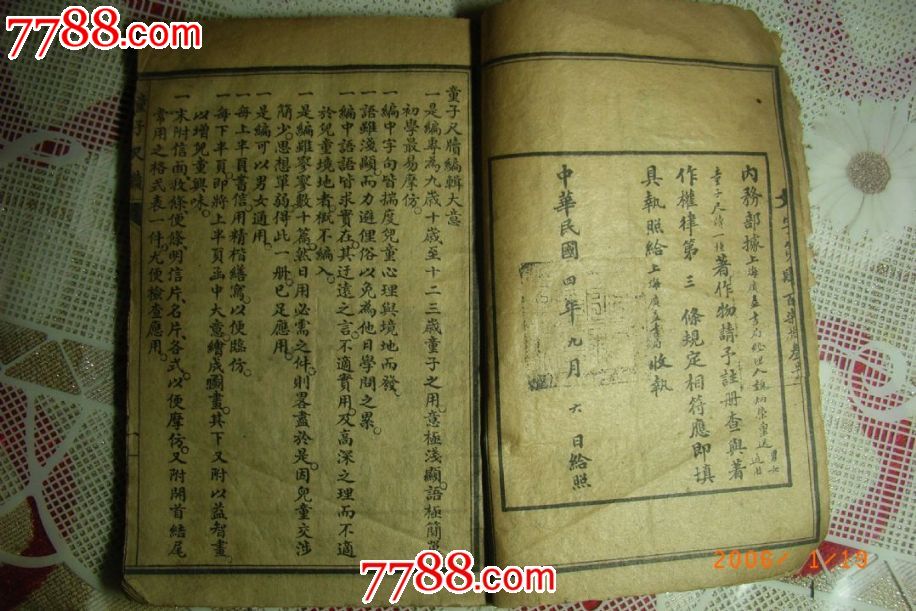 7788.com
7788.com
內務部據上海廣益書局經理人魏炳榮稟送
童子尺牘一種著作物請予註冊查與著
作權律第三條規定相符應即填
具執照給上海廣益書局收執
中華民國四年九月六日給照
童子尺牘編輯大意
一是編專為九歲十歲至十二三歲童子之用意極淺顯語極簡單
初學最易摩仿。
一編中字句皆揣度兒童心理與境地而發。
一語雖淺顯而力避俚俗以免為他日學問之累。
一編中語語皆求實在。其迂遠之言。不適實用。及高深之理而不適
於兒童境地者概不編入。
一是編雖寥寥數十篇。然日用必需之件。則畧盡於是。因兒童交涉
簡少。思想單弱。得此一册已足應用。
一是編可以男女通用。
一每上半頁書信用精楷繕寫。以便臨仿。
一每下半頁即將上半頁函中大意繪成圖畫。其下又附以益智畫
以增兒童興味。
一末附信面。收條。便條。明信片。名片。各式。以便摩仿。又附開首結尾
常用之格式表一件。尤便檢查應用。
2006/ 1/19
7788.com
7788.com